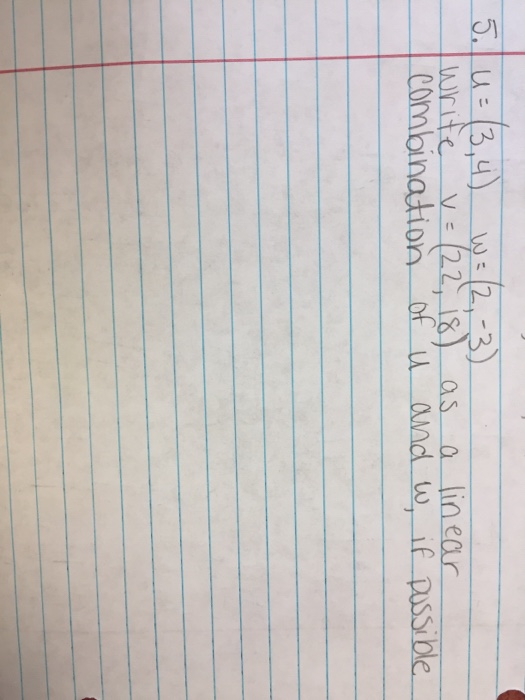 5. u = (3,4) w = (2,-3)
write v = (22, 18) as a linear
combination of u and w, if possible